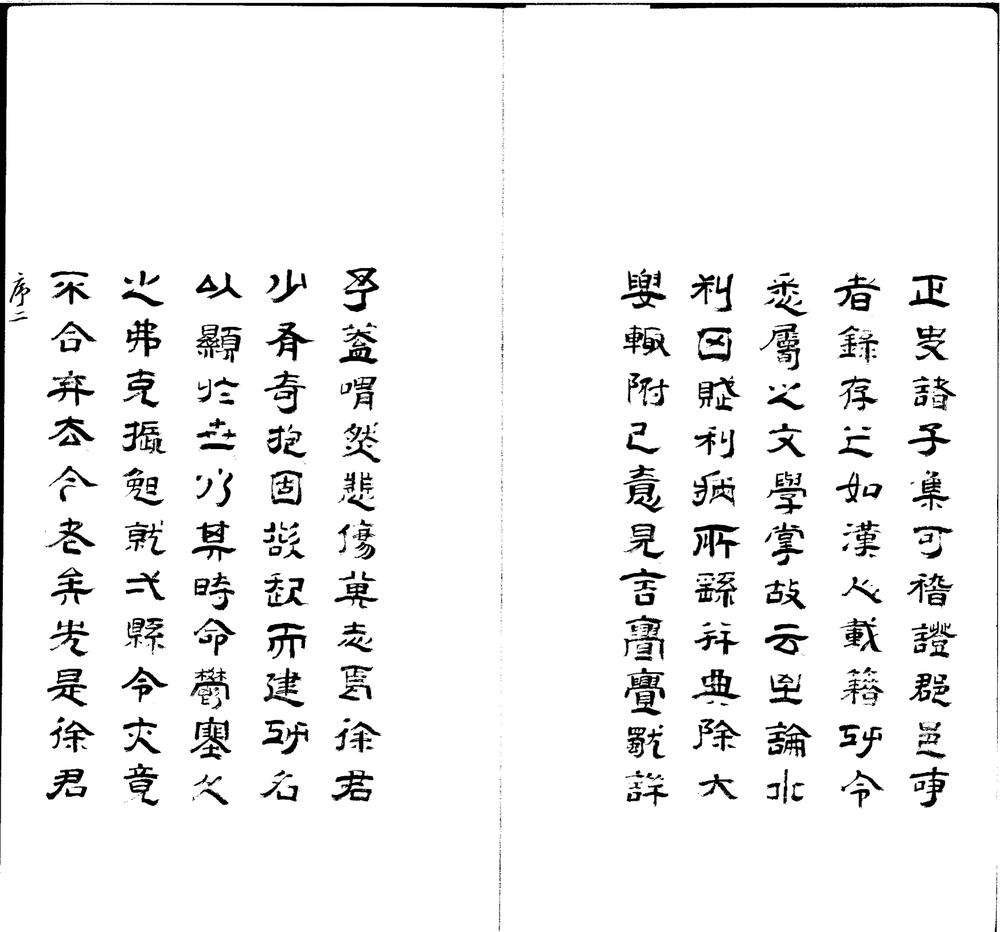 正史諸子集可稽證郡邑事
者錄存之如漢人載籍功令
悉屬之文學掌故云至論水
利田賦利病所繇并典除大
要輒附己意見言亹亹詳
予蓋喟然悲傷其志焉徐君
少有奇抱固欲起而建功名
以顯於世以其時命鬱塞久
之弗克攄勉就弌縣令亦竟
不合弃去今老矣先是徐君
序二